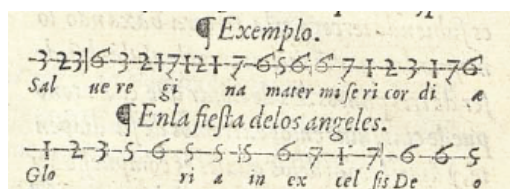 ¶ Exemplo.
-3-23|-6-3-217121-7-6-56-|6-7-1-2-3-176
Sal ue re gi na mater mi se ri cor di æ
¶ Enla fiesta delos angeles.
-1-2-3-5-6-5-5-|5-6-7-1-7|-6-6-5
Glo ri a in ex cel sis De o